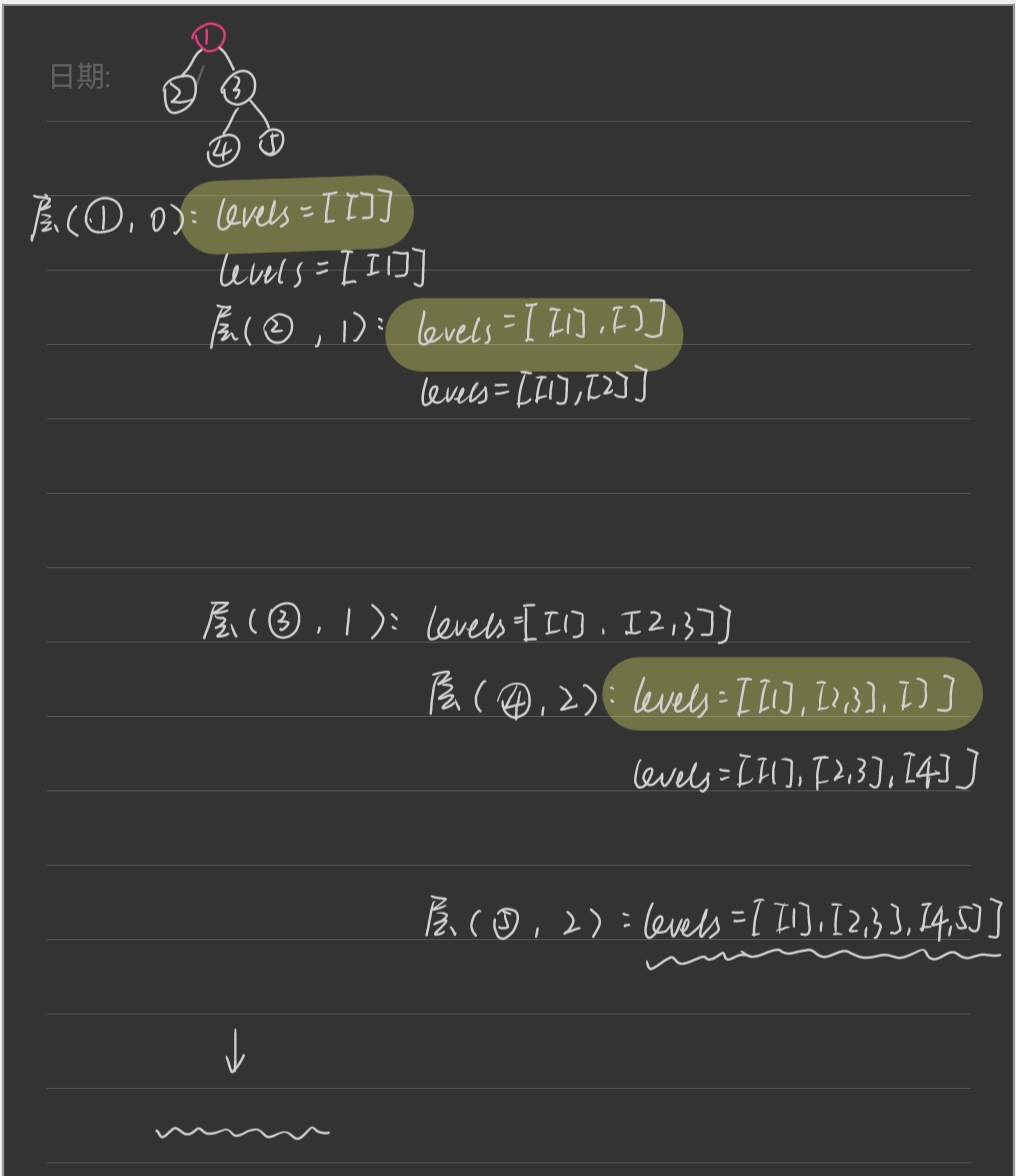 ①
日期:
② ③
④ ⑤
层(①, 0): levels = [[]]
levels = [[1]]
层(②, 1): levels = [[1], []]
levels = [[1], [2]]
层(③, 1): levels = [[1], [2,3]]
层(④, 2): levels = [[1], [2,3], []]
levels = [[1], [2,3], [4]]
层(⑤, 2): levels = [[1], [2,3], [4,5]]
↓